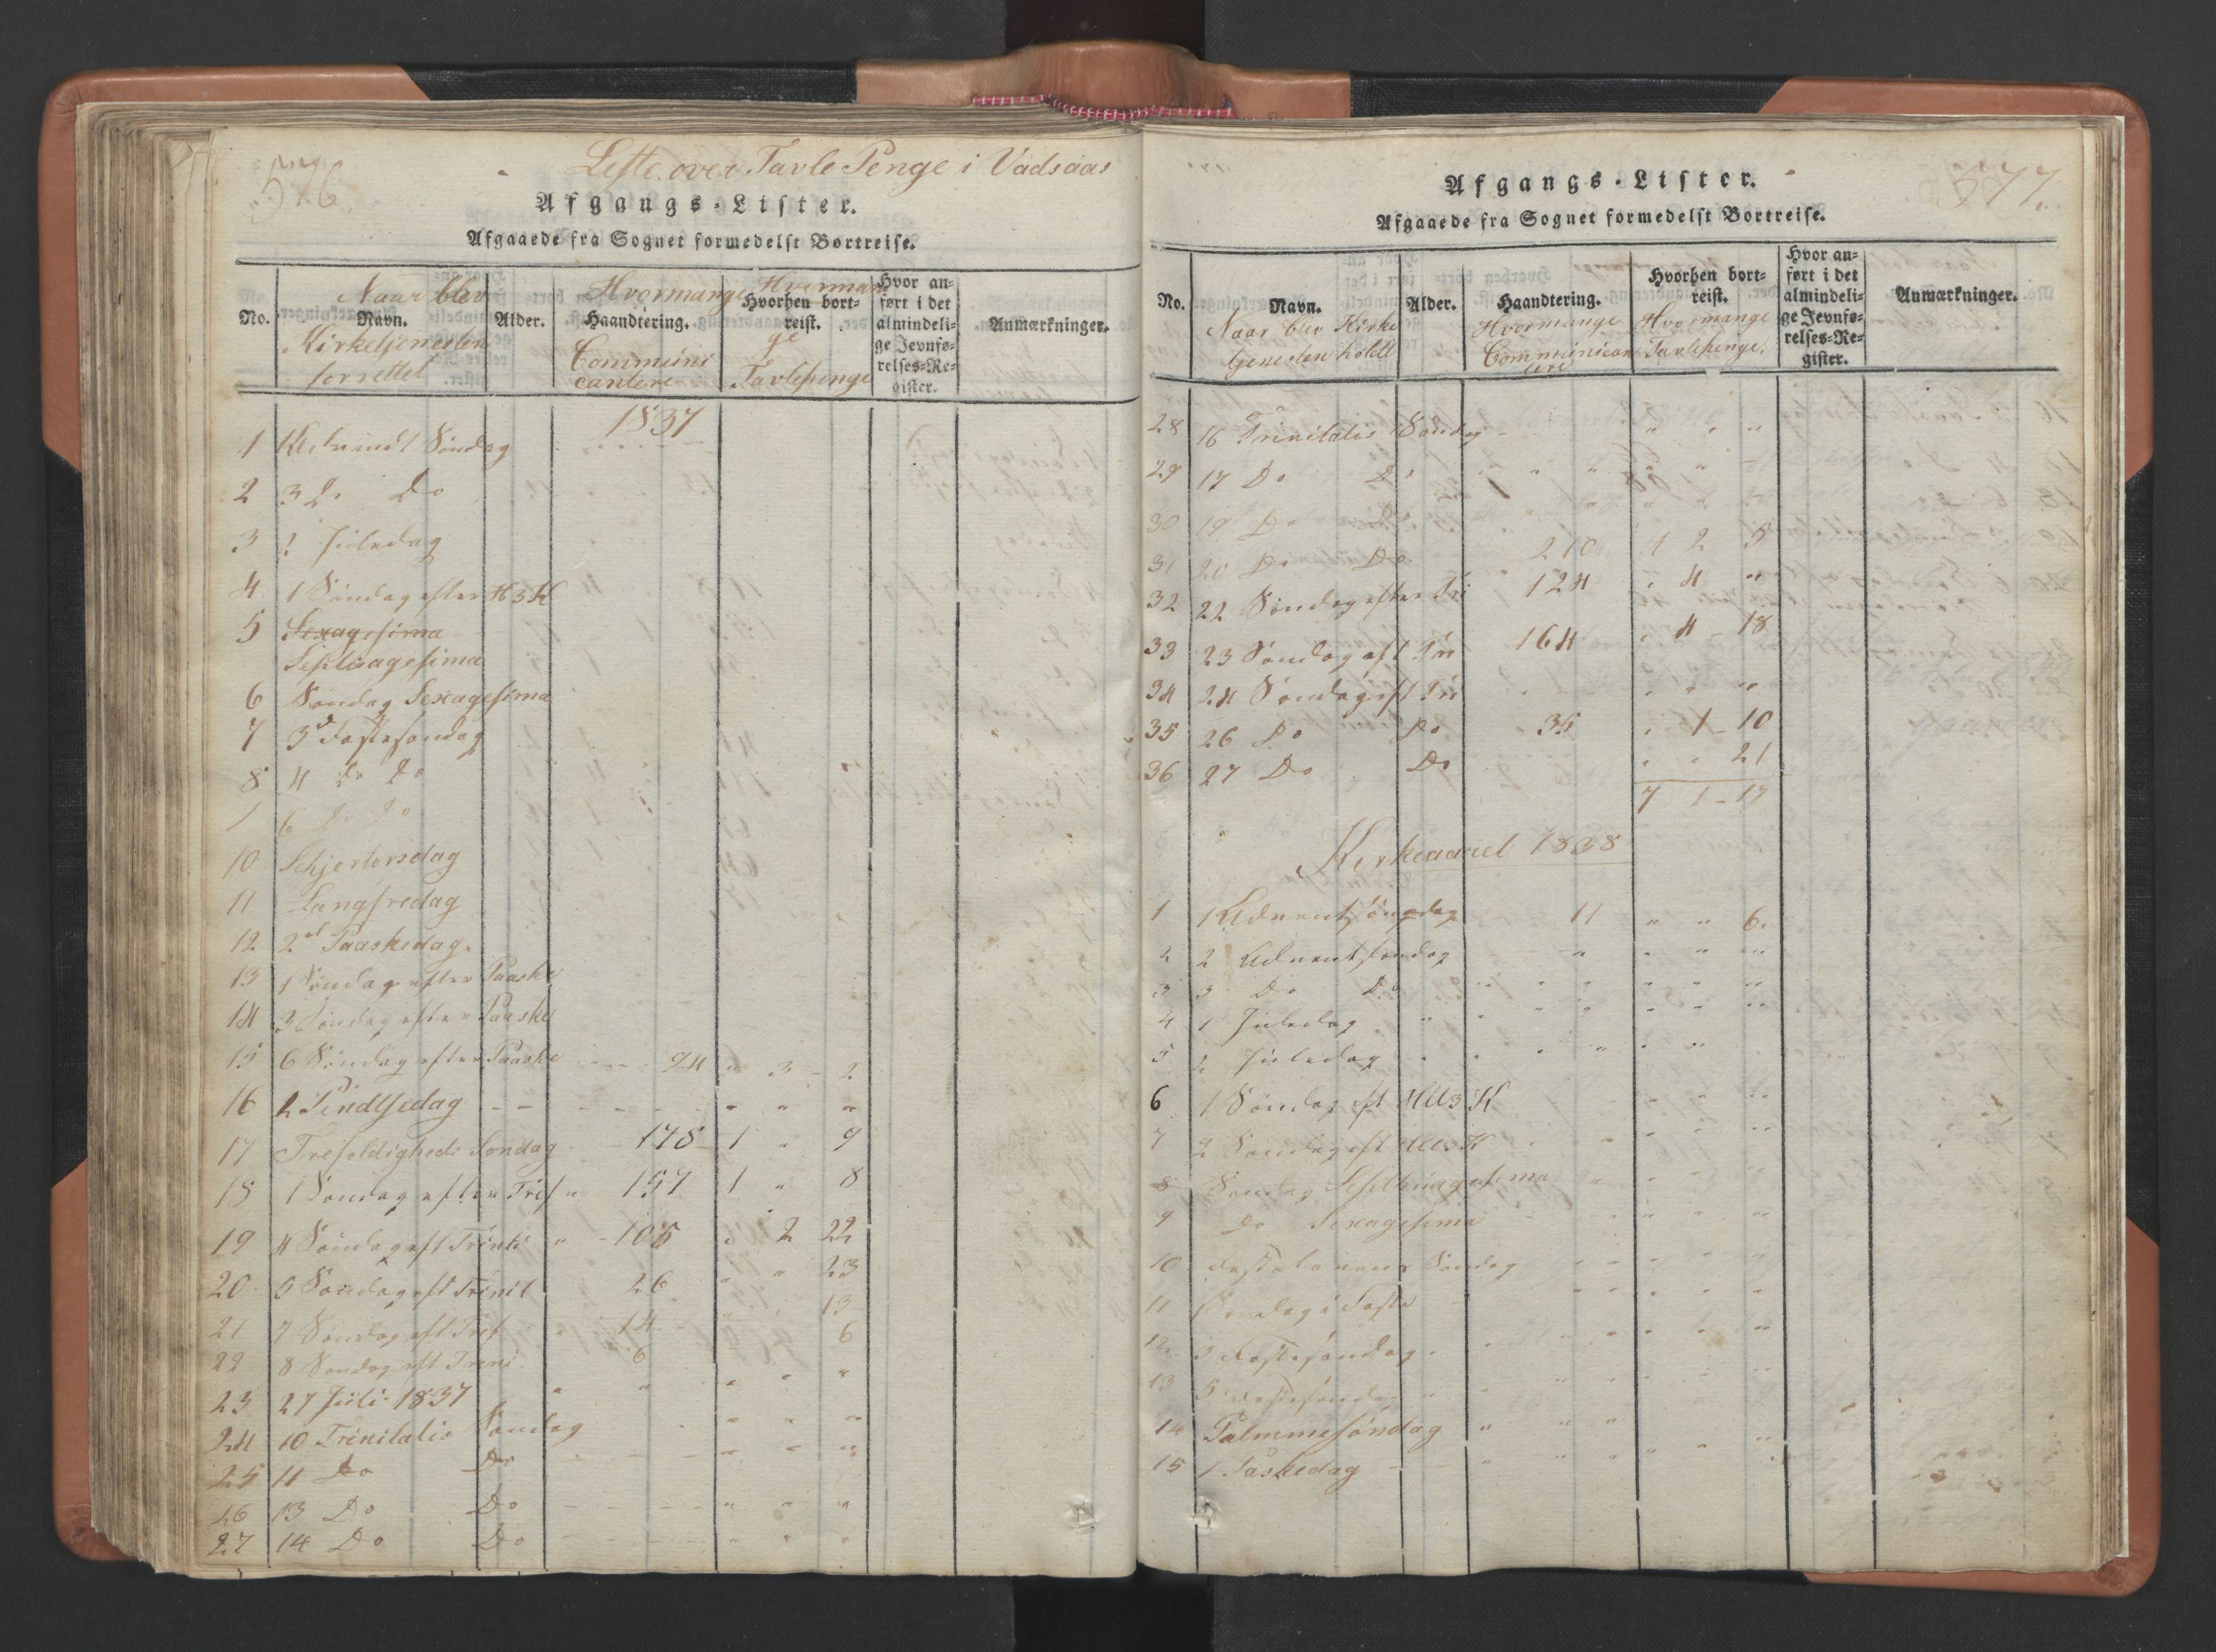 576
Liste over Tavle Penge i Vadsaas
Afgangs-Lister.
Afgaaede fra Sognet formedelst Bortreise.
No.
Navn.
Alder.
Haandtering.
Hvorhen bort-
reist.
Hvor an-
ført i det
almindeli-
ge Jevnfø-
relses-Re-
gister.
Anmærkninger.
Naar blev
Kirketjenesten
forrettet
Hvormange
Communi
cantere
Hvorman
ge
Tavlepenge
1837
1 1 Advendt Søndag
2 3 Do Do
3 Juledag
4 1 Søndag efter H 3 K
5 Sexagesima
Septuagesima
6 Søndag Sexagesima
7 3d Fastesøndag
8 4 Do Do
6 Do Do
10 Schjertorsdag
11 Langfredag
12 2d Paaskedag
13 1 Søndag efter Paaske
14 3 Søndag efter Paaske
15 6 Søndag efter Paaske - - - 94 " 3 - 2
16 2 Pindtsedag - - - - - - - " " "
17 Trefoldigheds Søndag 178 1 " 9
18 1 Søndag efter Tref " 157 1 " 8
19 4 Søndag eft Trinti " - 105 " 2 22
20 5 Søndag eft Trinit 26 " " 23
21 7 Søndag eft Trit " 14 - " " 13
22 8 Søndag eft Treni 6 6
23 27 Juli 1837 " " " " "
24 10 Trinitatis Søndag " " "
25 11 Do Do - - - - " " "
26 13 Do Do - - - - " " "
27 14 Do Do - - - - " " "
577.
Afgangs-Lister.
Afgaaede fra Sognet formedelst Bortreise.
No.
Navn.
Alder.
Haandtering.
Hvorhen bort-
reist.
Hvor an-
ført i det
almindeli-
ge Jevnfø-
relses-Re-
gister.
Anmærkninger.
Naar blev Kirke
tjenesten holdt
Hvormange
Communican
tere
Hvormange
Tavlepenge.
28 16 Trinitatis Søndag - " " "
29 17 Do Do " " " " " "
30 19 Do Do " " " " "
31 20 Do Do 210 1 2 5
32 22 Søndag efter Tri 124 " 4 "
33 23 Søndag eft Tri 164 " 4 - 18
34 24 Søndag eft Tri " " " "
35 26 Do Do 35 " 1 - 10
36 27 Do Do " " 21
7 1 - 17
Kirkeaaret 1838
1 1 Advent søndag 11 " " 6.
2 2 Advent søndag " " " "
3 3 Do Do " " " " " " "
4 1 Juledag " " " " " " "
5 2 Juledag " " " " " "
6 1 Søndag eft H 3 K " " " "
7 2 Søndag eft H 3 K " " " " "
8 Søndag Septuagesima " " " " "
9 Do Sexagesima " " " " "
10 Fastelavens Søndag " " " " "
11 Søndag i Faste " " " " " "
12 3 Fastesøndag " " " " " "
13 5 Fastesøndag " " " " " " "
14 Palmmesøndag " " "
15 1 Paskedag - - " " " " " "